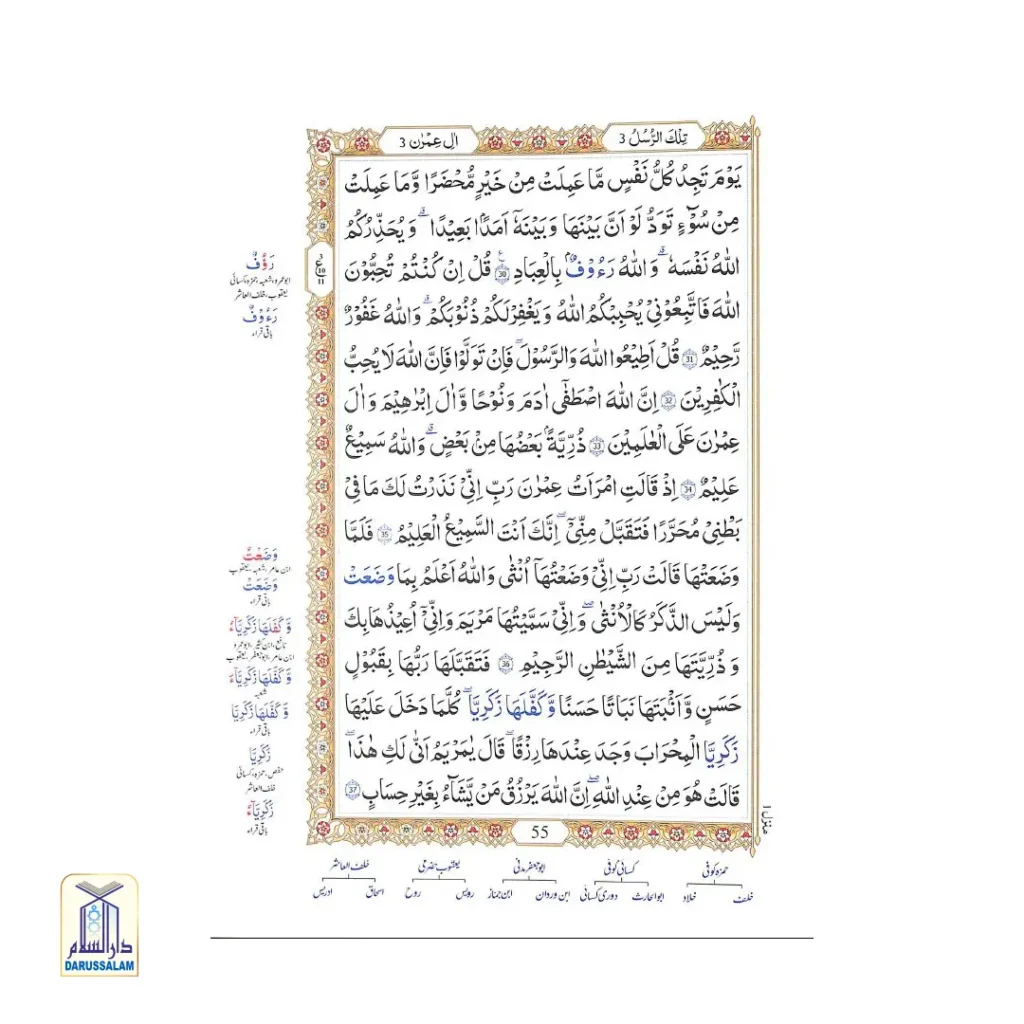 تِلْكَ الرُّسُلُ 3
اٰلِ عِمْرٰن 3
يَوْمَ تَجِدُ كُلُّ نَفْسٍ مَّا عَمِلَتْ مِنْ خَيْرٍ مُّحْضَرًا وَّمَا عَمِلَتْ
مِنْ سُوْٓءٍ تَوَدُّ لَوْ اَنَّ بَيْنَهَا وَبَيْنَهٗٓ اَمَدًاۢ بَعِيْدًا ۗ وَيُحَذِّرُكُمُ
اللّٰهُ نَفْسَهٗ ۗ وَاللّٰهُ رَءُوْفٌۢ بِالْعِبَادِ 30 قُلْ اِنْ كُنْتُمْ تُحِبُّوْنَ
اللّٰهَ فَاتَّبِعُوْنِيْ يُحْبِبْكُمُ اللّٰهُ وَيَغْفِرْلَكُمْ ذُنُوْبَكُمْ ۗ وَاللّٰهُ غَفُوْرٌ
رَّحِيْمٌ 31 قُلْ اَطِيْعُوا اللّٰهَ وَالرَّسُوْلَ ۚ فَاِنْ تَوَلَّوْا فَاِنَّ اللّٰهَ لَا يُحِبُّ
الْكٰفِرِيْنَ 32 اِنَّ اللّٰهَ اصْطَفٰٓى اٰدَمَ وَنُوْحًا وَّاٰلَ اِبْرٰهِيْمَ وَاٰلَ
عِمْرٰنَ عَلَى الْعٰلَمِيْنَ 33 ذُرِّيَّةًۢ بَعْضُهَا مِنْۢ بَعْضٍ ۗ وَاللّٰهُ سَمِيْعٌ
عَلِيْمٌ 34 اِذْ قَالَتِ امْرَاَتُ عِمْرٰنَ رَبِّ اِنِّيْ نَذَرْتُ لَكَ مَا فِيْ
بَطْنِيْ مُحَرَّرًا فَتَقَبَّلْ مِنِّيْ ۚ اِنَّكَ اَنْتَ السَّمِيْعُ الْعَلِيْمُ 35 فَلَمَّا
وَضَعَتْهَا قَالَتْ رَبِّ اِنِّيْ وَضَعْتُهَآ اُنْثٰى وَاللّٰهُ اَعْلَمُ بِمَا وَضَعَتْ
وَلَيْسَ الذَّكَرُ كَالْاُنْثٰى ۚ وَاِنِّيْ سَمَّيْتُهَا مَرْيَمَ وَاِنِّيْٓ اُعِيْذُهَا بِكَ
وَذُرِّيَّتَهَا مِنَ الشَّيْطٰنِ الرَّجِيْمِ 36 فَتَقَبَّلَهَا رَبُّهَا بِقَبُوْلٍ
حَسَنٍ وَّاَنْۢبَتَهَا نَبَاتًا حَسَنًا وَّكَفَّلَهَا زَكَرِيَّا ۚ كُلَّمَا دَخَلَ عَلَيْهَا
زَكَرِيَّا الْمِحْرَابَ وَجَدَ عِنْدَهَا رِزْقًا ۚ قَالَ يٰمَرْيَمُ اَنّٰى لَكِ هٰذَا ۚ
قَالَتْ هُوَ مِنْ عِنْدِ اللّٰهِ ۖ اِنَّ اللّٰهَ يَرْزُقُ مَنْ يَّشَآءُ بِغَيْرِ حِسَابٍ 37
55
منزل ١
ع
10
11
رَؤُفٌ
ابوعمرو، شعبہ، حمزہ، کسائی
یعقوب، خلف العاشر
رَءُوْفٌ
باقی قراء
وَضَعْتُ
ابن عامر، شعبہ، یعقوب
وَضَعَتْ
باقی قراء
وَكَفَلَهَا زَكَرِيَّآءُ
نافع، ابن کثیر، ابوعمرو
ابن عامر، ابوجعفر، یعقوب
وَكَفَّلَهَا زَكَرِيَّآءَ
شعبہ
وَكَفَّلَهَا زَكَرِيَّا
باقی قراء
زَكَرِيَّا
حفص، حمزہ، کسائی
خلف العاشر
زَكَرِيَّآءُ
باقی قراء
حمزہ کوفی کسائی کوفی ابوجعفر مدنی یعقوب حضرمی خلف العاشر
خلف خلاد ابوالحارث دوری کسائی ابن وردان ابن جماز رویس روح اسحاق ادریس
دار السلام
DARUSSALAM